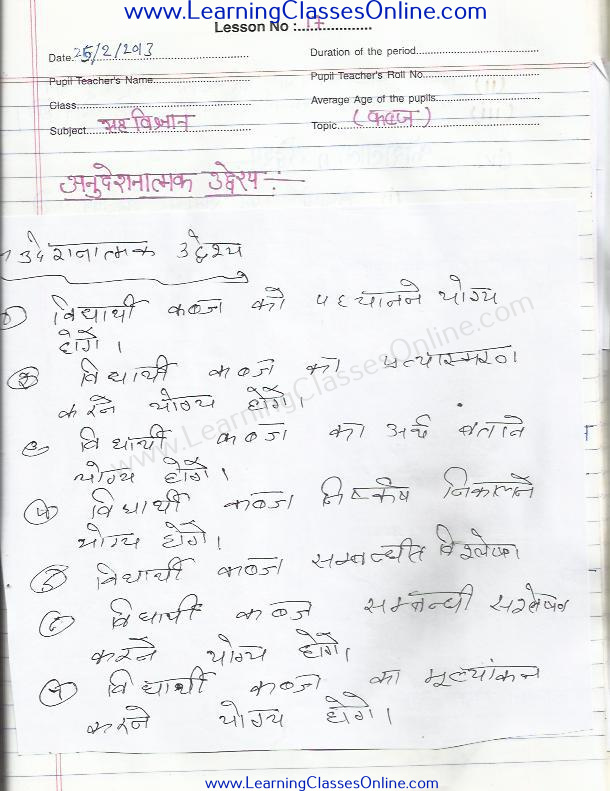 www.LearningClassesOnline.com
Lesson No :....17....
Date 25/2/2013 Duration of the period
Pupil Teacher's Name Pupil Teacher's Roll No
Class Average Age of the pupils
Subject गृह विज्ञान Topic (कब्ज)
अनुदेशनात्मक उद्देश्य :-
उदेशनात्मक उद्देश्य
विद्यार्थी कब्ज को पहचानने योग्य
होगें।
② विद्यार्थी कब्ज का प्रत्यास्मरण
करने योग्य होगें।
③ विद्यार्थी कब्ज का अर्थ बताने
योग्य होगें।
④ विद्यार्थी कब्ज निष्कर्ष निकालने
योग्य होगें।
⑤ विद्यार्थी कब्ज सम्बन्धीत विश्लेषण
⑥ विद्यार्थी कब्ज सम्बन्धी सश्लेषण
करने योग्य होगें।
⑦ विद्यार्थी कब्ज का मूल्यांकन
करने योग्य होगे।
www.LearningClassesOnline.com
www.LearningClassesOnline.com